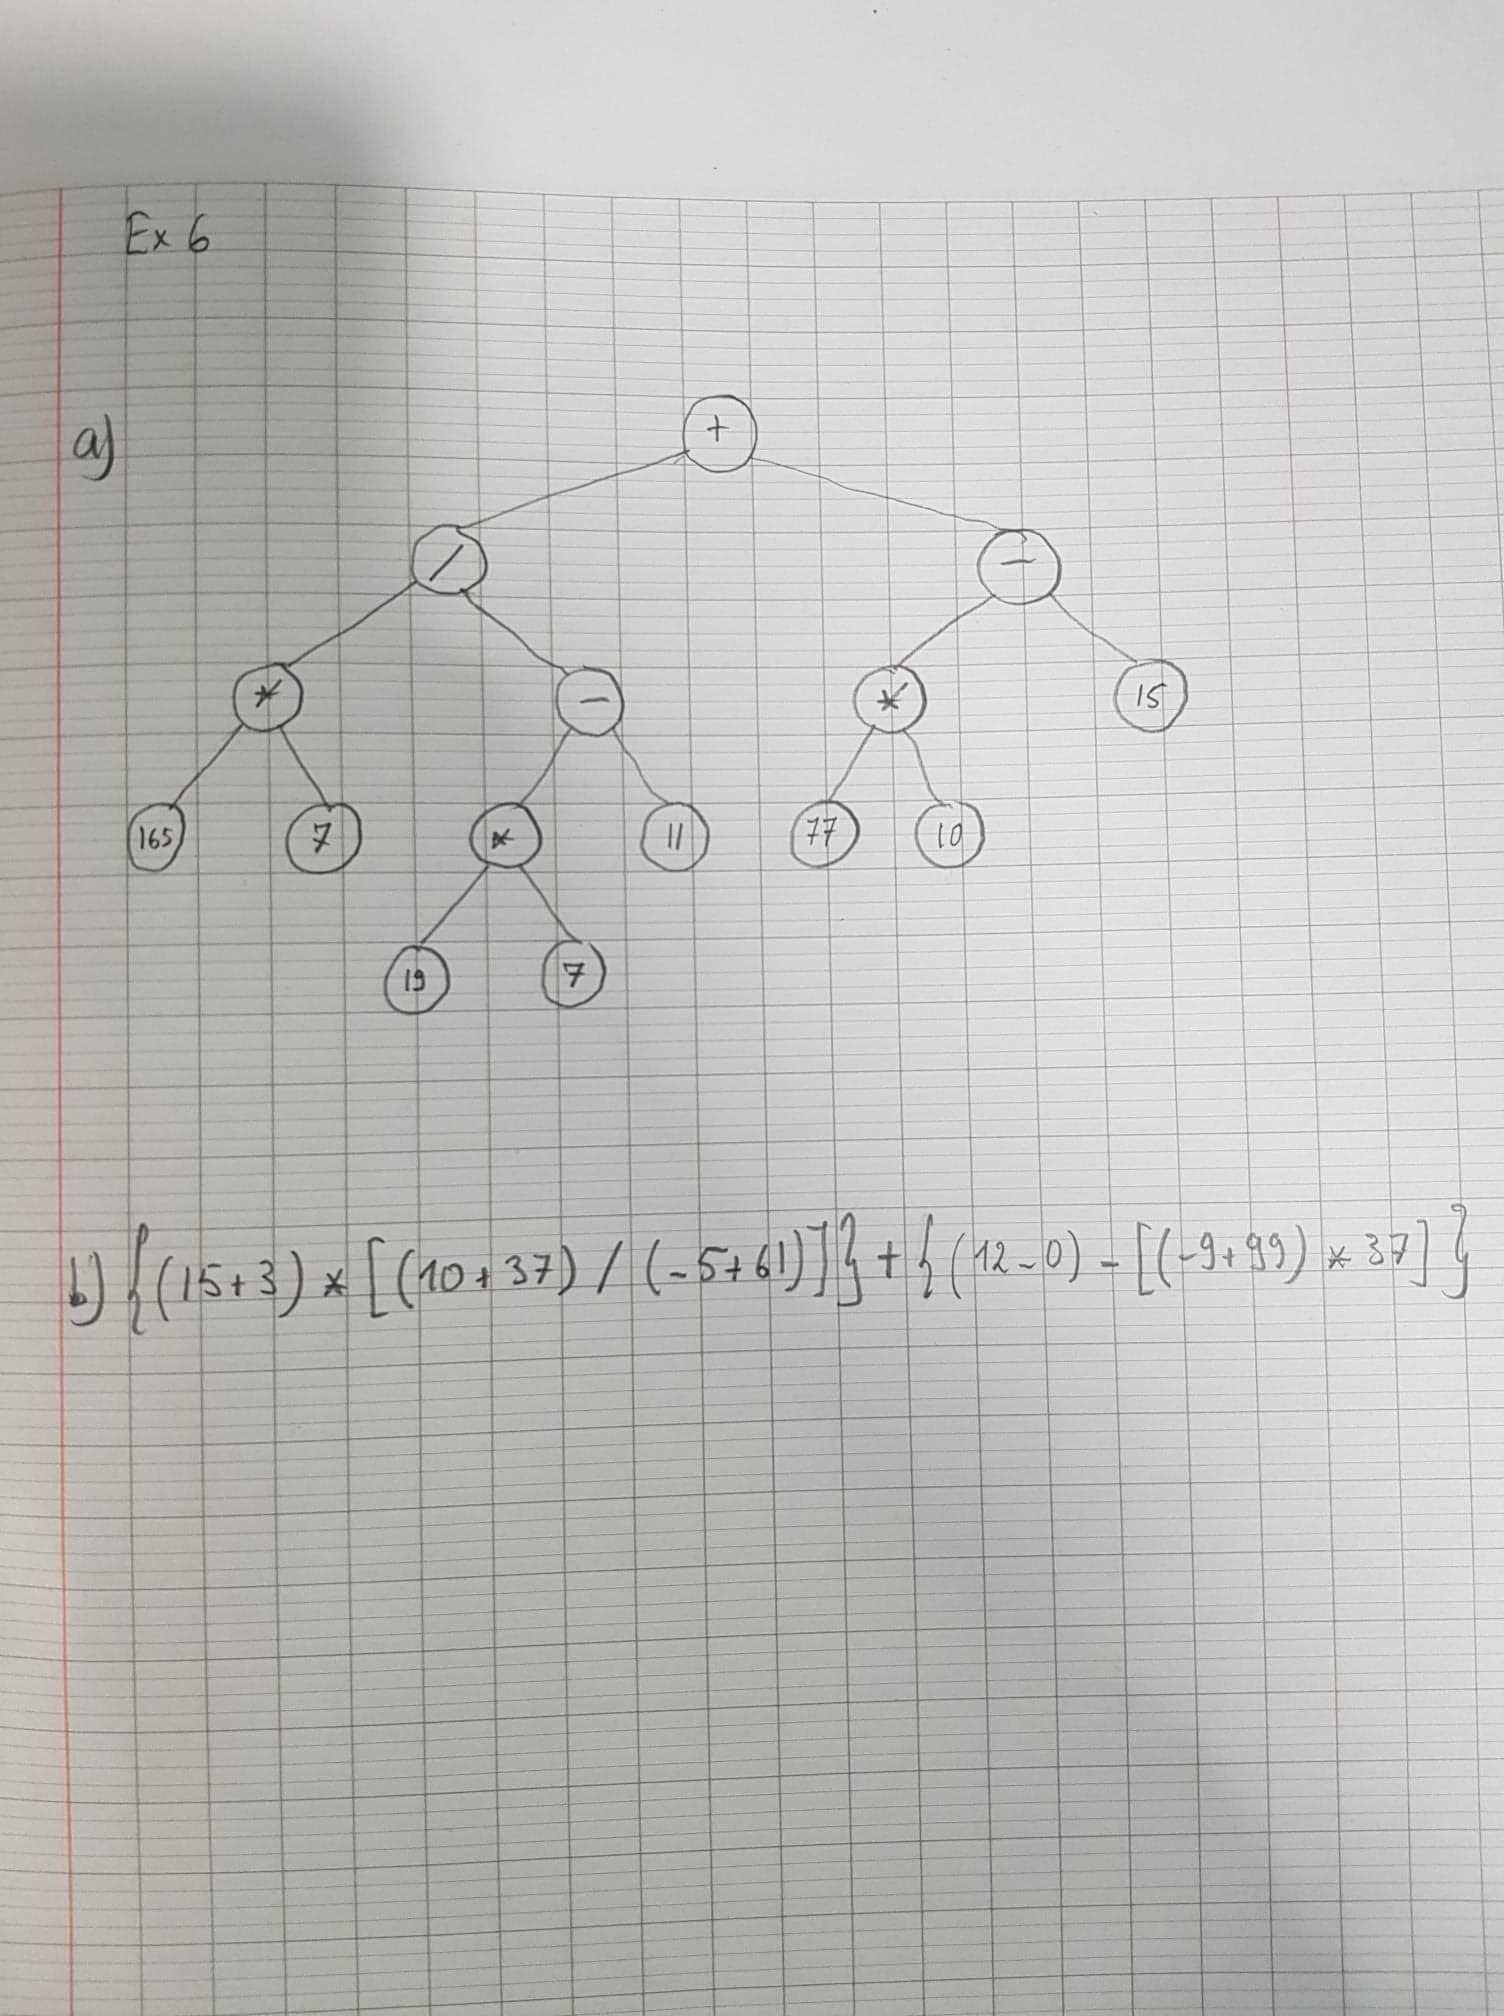 Ex 6
a)
+
/ -
* - * 15
165 7 * 11 77 10
19 7
b) {(15+3) * [(10+37) / (-5+61)]} + {(12-0) - [(-9+99) * 37]}